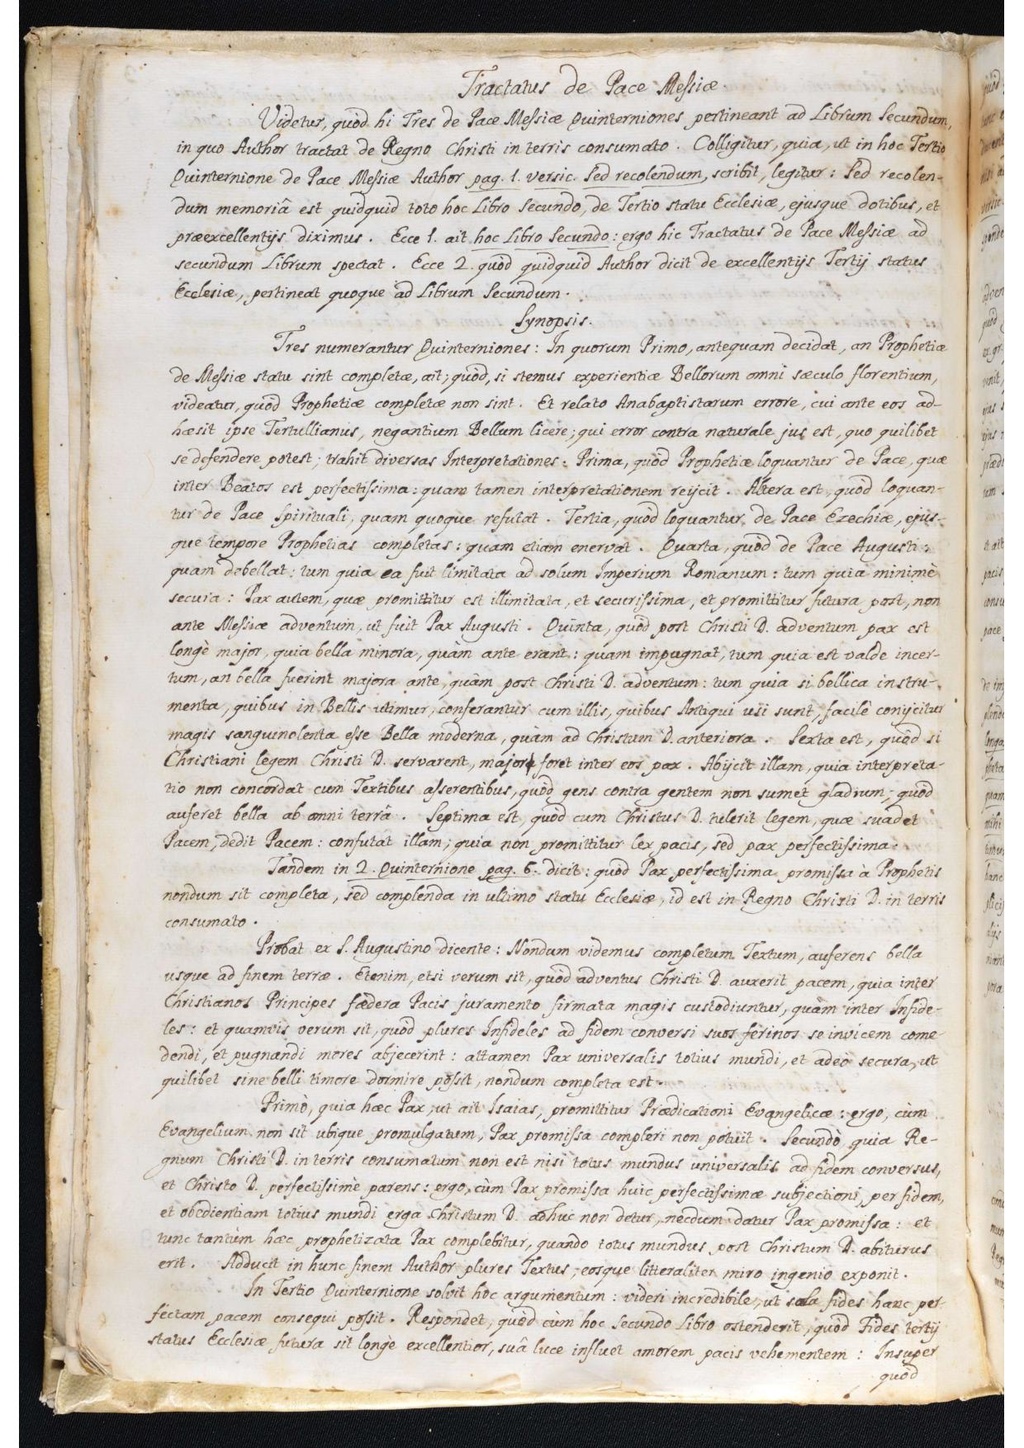 Tractatus de Pace Messiæ
Videtur, quòd hi Tres de Pace Messiæ Quinterniones pertineant ad Librum Secundum,
in quo Author tractat de Regno Christi in terris consumato. Colligitur, quia, ut in hoc Tertio
Quinternione de Pace Messiæ Author pag. 1. versic. Sed recolendum, scribit, legitur: Sed recolen-
dum memoriâ est quidquid toto hoc Libro Secundo, de Tertio statu Ecclesiæ, ejusque dotibus, et
præexcellentijs diximus. Ecce 1. ait hoc Libro Secundo: ergo hic Tractatus de Pace Messiæ ad
secundum Librum spectat. Ecce 2. quòd quidquid Author dicit de excellentijs Tertij status
Ecclesiæ, pertineat quoque ad Librum Secundum.
Synopsis.
Tres numerantur Quinterniones: In quorum Primo, antequam decidat, an Prophetiæ
de Messiæ statu sint completæ, ait; quòd, si stemus experientiæ Bellorum omni sæculo florentium,
videatur, quòd Prophetiæ completæ non sint. Et relato Anabaptistarum errore, cui ante eos ad-
hæsit ipse Tertullianus, negantium Bellum licere; qui error contra naturale jus est, quo quilibet
se defendere potest; trahit diversas Interpretationes: Prima, quòd Prophetiæ loquantur de Pace, quæ
inter Beatos est perfectissima: quam tamen interpretationem reijcit. Altera est, quòd loquan-
tur de Pace Spirituali, quam quoque refutat. Tertia, quòd loquantur de Pace Ezechiæ, ejus-
que tempore Prophetias completas: quam etiam enervat. Quarta, quòd de Pace Augusti:
quam debellat: tum quia ea fuit limitata ad solum Imperium Romanum: tum quia minimè
secura: Pax autem, quæ promittitur est illimitata, et securissima, et promittitur futura post, non
ante Messiæ adventum, ut fuit Pax Augusti. Quinta, quòd post Christi D. adventum pax est
longè major, quia bella minora, quàm ante erant: quam impugnat, tum quia est valde incer-
tum, an bella fuerint majora ante, quàm post Christi D. adventum: tum quia si bellica instru-
menta, quibus in Bellis utimur, conferantur cum illis, quibus Antiqui usi sunt, facilè conijcitur
magis sanguinolenta esse Bella moderna, quam ad Christum D. anteriora. Sexta est, quòd si
Christiani legem Christi D. servarent, major foret inter eos pax. Abijcit illam, quia interpreta-
tio non concordat cum Textibus asserentibus, quòd gens contra gentem non sumet gladium; quòd
auferet bella ab omni terrâ. Septima est, quòd cum Christus D. tulerit legem, quæ suadet
Pacem, dedit Pacem: confutat illam; quia non promittitur lex pacis, sed pax perfectissima.
Tandem in 2. Quinternione pag. 6. dicit: quòd Pax perfectissima promissa à Prophetis
nondum sit completa, sed complenda in ultimo statu Ecclesiæ, id est in Regno Christi D. in terris
consumato.
Probat ex S. Augustino dicente: Nondum videmus completum Textum, auferens bella
usque ad finem terræ. Etenim, etsi verum sit, quòd adventus Christi D. auxerit pacem, quia inter
Christianos Principes fædera Pacis juramento firmata magis custodiuntur, quàm inter Infide-
les: et quamvis verum sit, quòd plures Infideles ad fidem conversi suos ferinos se invicem come-
dendi, et pugnandi mores abjecerint: attamen Pax universalis totius mundi, et adeo secura, ut
quilibet sine belli timore dormire possit, nondum completa est.
Primò, quia hæc Pax, ut ait Isaias, promittitur Prædicationi Evangelicæ: ergo, cùm
Evangelium non sit ubique promulgatum, Pax promissa compleri non potuit. Secundò quia Re-
gnum Christi D. in terris consumatum non est nisi totus mundus universalis ad fidem conversus,
et Christo D. perfectissimè parens: ergo, cùm Pax promissa huic perfectissimæ subjectioni, per fidem,
et obedientiam totius mundi erga Christum D. adhuc non detur, necdum datur Pax promissa: et
tunc tantum hæc prophetizata Pax complebitur, quando totus mundus post Christum D. abiturus
erit. Adducit in hunc finem Author plures Textus, eosque litteraliter miro ingenio exponit.
In Tertio Quinternione solvit hoc argumentum: videri incredibile, ut sola fides hanc per-
fectam pacem consequi possit. Respondet, quòd cùm hoc Secundo Libro ostenderit, quòd Fides tertij
status Ecclesiæ futura sit longe excellentior, suâ luce influet amorem pacis vehementem: Insuper
quòd